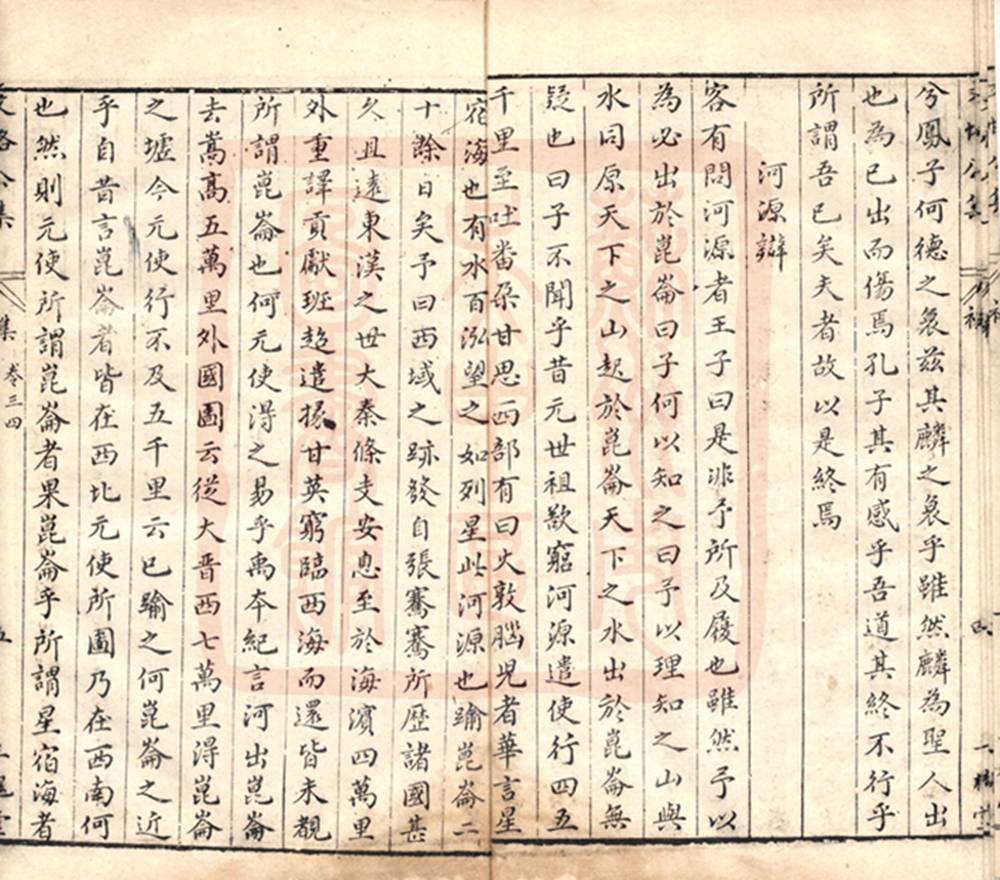 兮鳳子何德之衰兹其麟之衰乎雖然麟為聖人出
也為已出而傷焉孔子其有感乎吾道其終不行乎
所謂吾已矣夫者故以是終焉
河源辯
客有問河源者王子曰是非予所及履也雖然予以
為必出於崑崙曰子何以知之曰予以理知之山與
水同原天下之山起於崑崙天下之水出於崑崙無
疑也曰子不聞乎昔元世祖欲窮河源遣使行四五
千里至吐番朶甘思西部有曰火敦腦兒者華言星
宿海也有水百泓望之如列星此河源也踰崑崙二
十餘日矣予曰西域之跡發自張騫騫所歷諸國甚
久且遠東漢之世大秦條支安息至於海濱四萬里
外重譯貢獻班超遣掾甘英窮臨西海而還皆未覩
所謂崑崙也何元使得之易乎禹本紀言河出崑崙
去嵩高五萬里外國圖云從大晋西七萬里得崑崙
之墟今元使行不及五千里云已踰之何崑崙之近
乎自昔言崑崙者皆在西北元使所圖乃在西南何
也然則元使所謂崑崙者果崑崙乎所謂星宿海者
集 卷三四